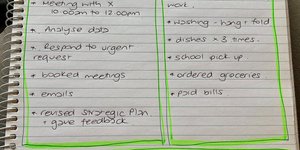 * Meeting with X
10.00am to 12.00pm
* Analyse data
* Respond to urgent
request
* booked meetings
* emails
* revised strategic plan
+ gave feedback
work.
* washing - hang + fold
* dishes x 3 times.
* school pick up
* ordered groceries
* paid bills